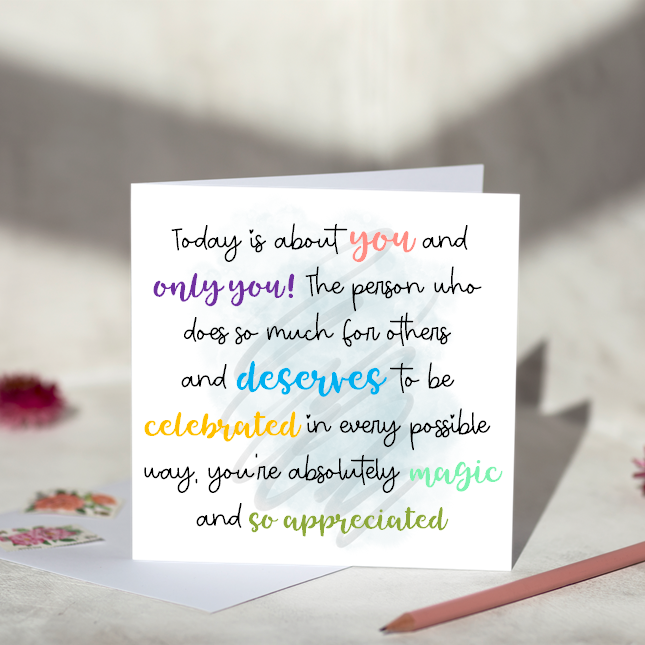 Today is about you and
only you! The person who
does so much for others
and deserves to be
celebrated in every possible
way, you're absolutely magic
and so appreciated